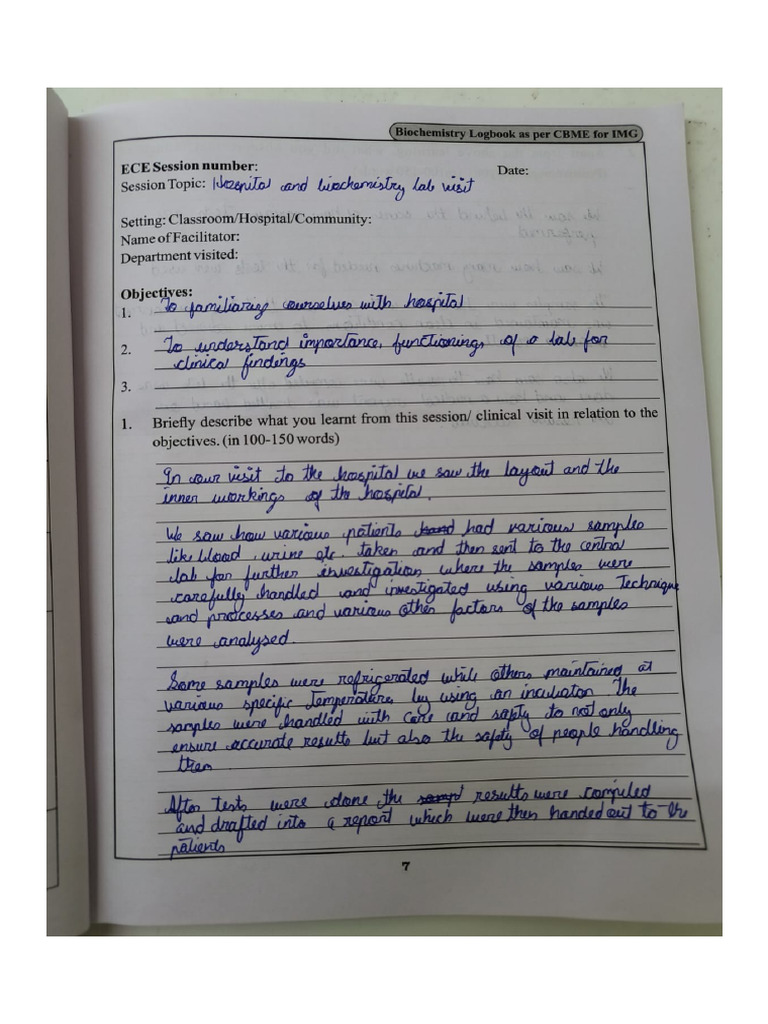 Biochemistry Logbook as per CBME for IMG
ECE Session number: Date:
Session Topic: Hospital and biochemistry lab visit
Setting: Classroom/Hospital/Community:
Name of Facilitator:
Department visited:
Objectives:
1. To familiaring ourselves with hospital
2. To understand importance, functioning, of a lab for
clinical findings
3.
1. Briefly describe what you learnt from this session/ clinical visit in relation to the
objectives. (in 100-150 words)
In our visit to the hospital we saw the layout and the
inner workings of the hospital.
We saw how various patients had various samples
like blood, urine etc. taken and then sent to the central
lab for further investigation where the samples were
carefully handled and investigated using various Technique
and processes and various other factors of the samples
were analysed.
Some samples were refrigerated while others maintained at
various specific Temperature by using an incubator. The
samples were handled with care and safty to not only
ensure accurate results but also the safty of people handling
them
After tests were done the results were compiled
and drafted into a report which were then handed out to the
patients
7